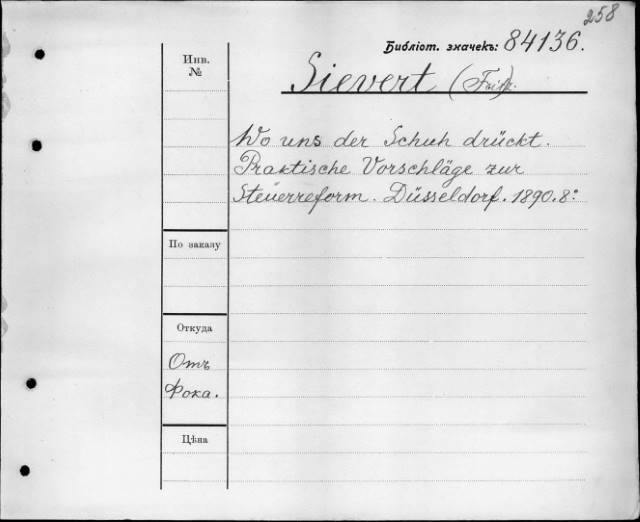 258
Библіот. значекъ: 84136.
Инв.
№
Sievert (Fritz).
Wo uns der Schuh drückt.
Praktische Vorschläge zur
Steuerreform. Düsseldorf. 1890. 8°
По заказу
Откуда
Отъ
Фока.
Цѣна